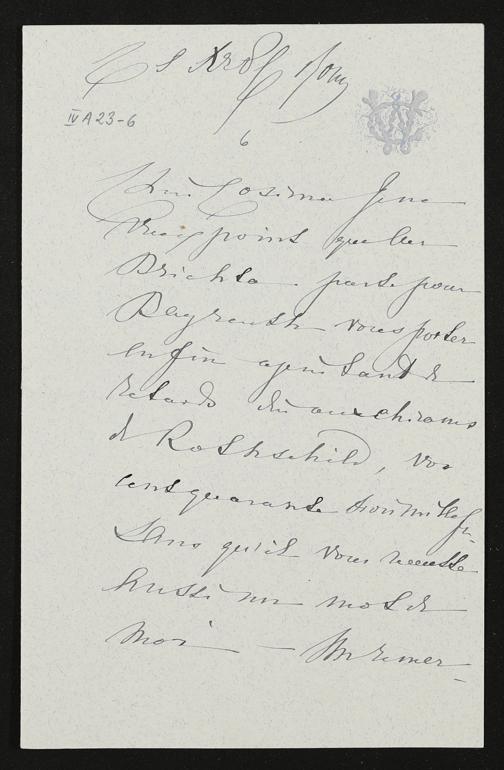 IV A 23-6
6
Cosima je ne
veux point que les
Brichta parte pour
Bayreuth vous porter
enfin après tant de
retards dû aux chicanes
d Rothschild, vos
cent quarante trois mille fr.
Sans qu'il vous remette
aussi un mot de
moi —